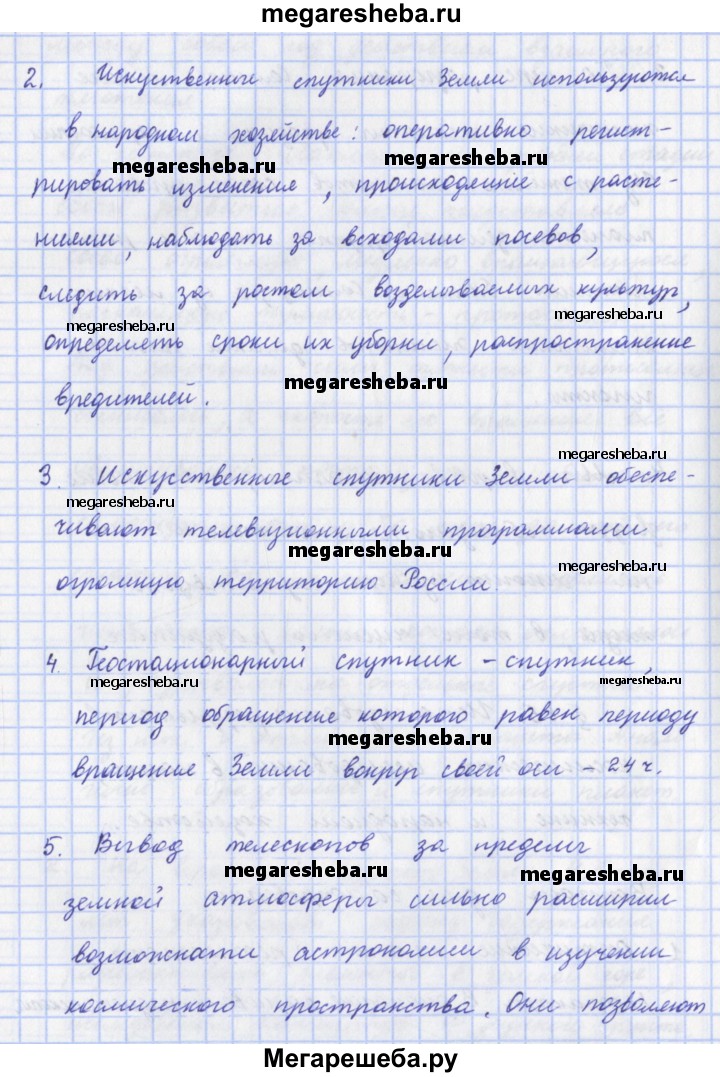 megaresheba.ru
2. Искуственные спутники Земли используются
в народном хозяйстве: оперативно регист-
megaresheba.ru megaresheba.ru
рировать изменения, происходящие с расте-
ниями, наблюдать за всходами посевов,
следить за ростом возделываемых культур,
megaresheba.ru megaresheba.ru
определять сроки их уборки, распространение
megaresheba.ru
вредителей.
megaresheba.ru
3. Искусственные спутники Земли обеспе-
megaresheba.ru
чивают телевизионными программами
megaresheba.ru
megaresheba.ru
огромную территорию России.
4. Геостационарный спутник - спутник,
megaresheba.ru megaresheba.ru
период обращение которого равен периоду
megaresheba.ru
вращение Земли вокруг своей оси - 24 ч.
5. Вывод телескопов за пределы
megaresheba.ru megaresheba.ru
земной атмосферы сильно расширил
возможнати астрономии в изучении
космического пространства. Они позволяют
Мегарешеба.ру